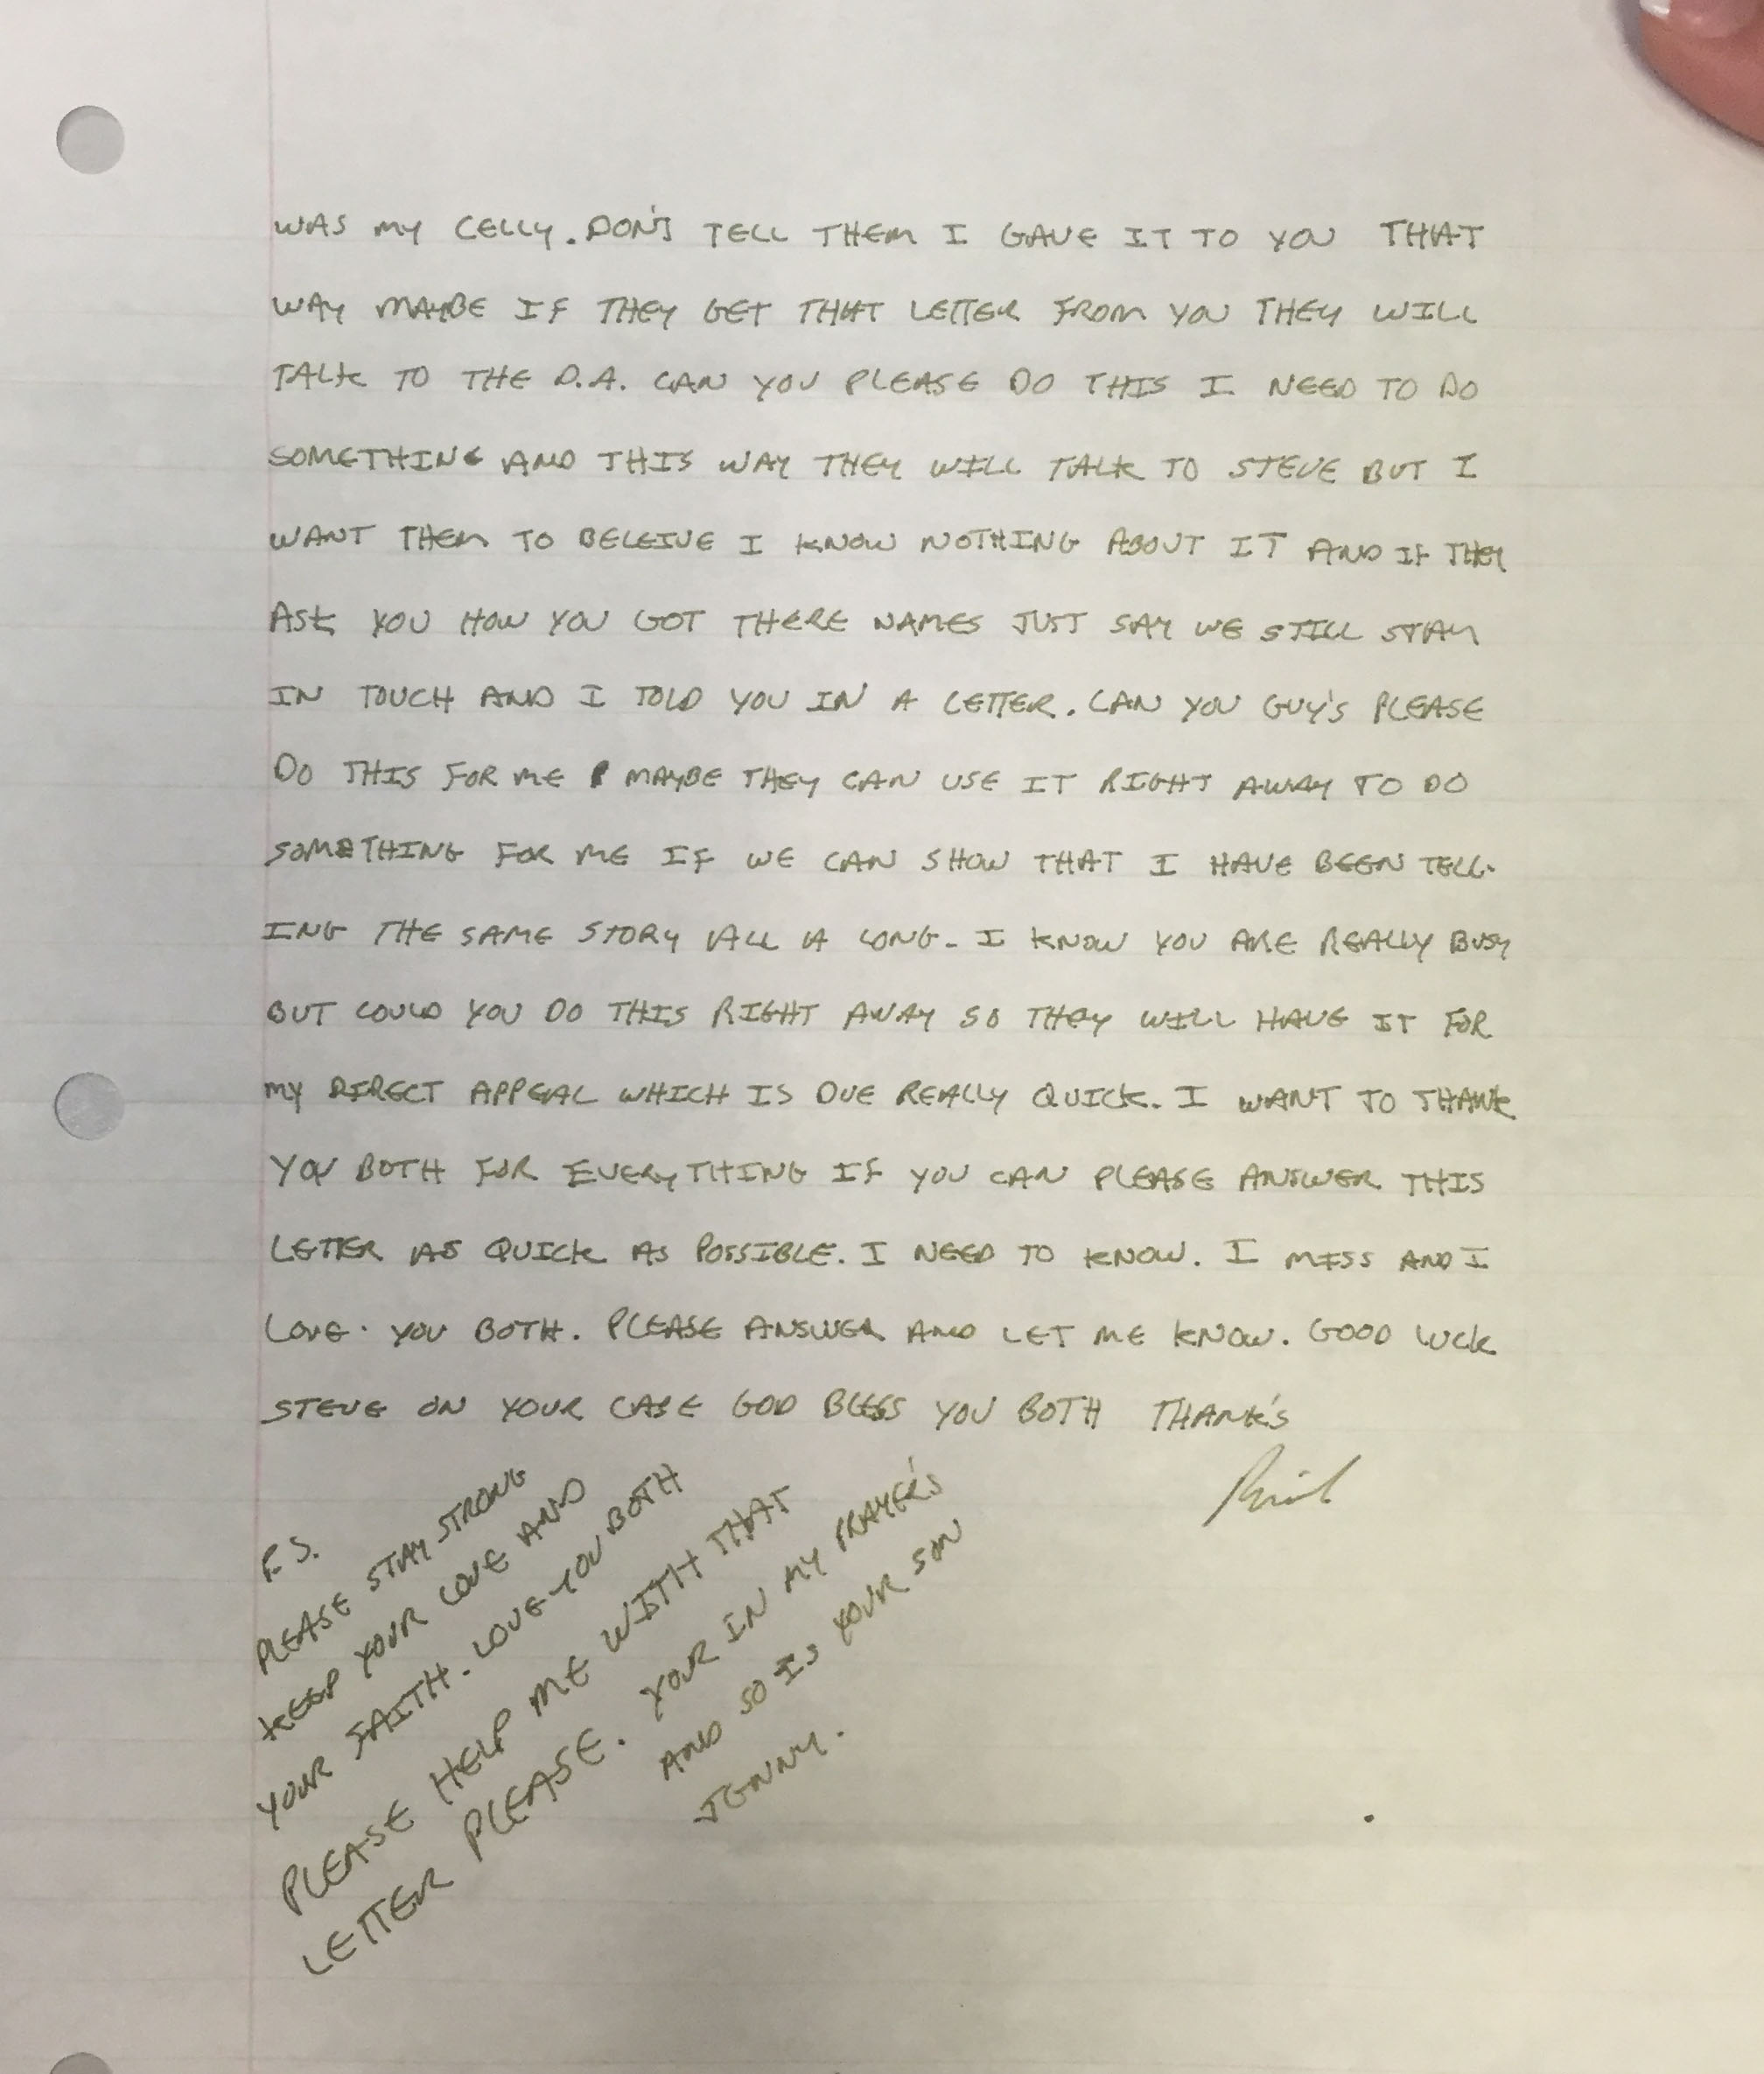 WAS MY CELLY. DON'T TELL THEM I GAVE IT TO YOU THAT
WAY MAYBE IF THEY GET THAT LETTER FROM YOU THEY WILL
TALK TO THE D.A. CAN YOU PLEASE DO THIS I NEED TO DO
SOMETHING AND THIS WAY THEY WILL TALK TO STEVE BUT I
WANT THEM TO BELEIVE I KNOW NOTHING ABOUT IT AND IF THEY
ASK YOU HOW YOU GOT THERE NAMES JUST SAY WE STILL STAY
IN TOUCH AND I TOLD YOU IN A LETTER. CAN YOU GUY'S PLEASE
DO THIS FOR ME MAYBE THEY CAN USE IT RIGHT AWAY TO DO
SOMETHING FOR ME IF WE CAN SHOW THAT I HAVE BEEN TELL-
ING THE SAME STORY ALL A LONG. I KNOW YOU ARE REALLY BUSY
BUT COULD YOU DO THIS RIGHT AWAY SO THEY WILL HAVE IT FOR
MY DIRECT APPEAL WHICH IS DUE REALLY QUICK. I WANT TO THANK
YOU BOTH FOR EVERYTHING IF YOU CAN PLEASE ANSWER THIS
LETTER AS QUICK AS POSSIBLE. I NEED TO KNOW. I MISS AND I
LOVE. YOU BOTH. PLEASE ANSWER AND LET ME KNOW. GOOD LUCK
STEVE ON YOUR CASE GOD BLESS YOU BOTH THANK'S
P.S.
PLEASE STAY STRONG
KEEP YOUR LOVE AND
YOUR FAITH. LOVE YOU BOTH
PLEASE HELP ME WITH THAT
LETTER PLEASE. YOUR IN MY PRAYER'S
AND SO IS YOUR SON
JENNY.